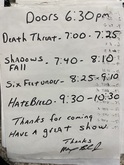 DOORS 6:30pm
DEATH THREAT - 7:00 - 7:25
SHADOWS
FALL - 7:40 - 8:10
SIX FEET UNDER - 8:25 - 9:10
HATEBREED - 9:30 - 10:30
THANKS FOR COMING
HAVE A GREAT SHOW.
Thanks